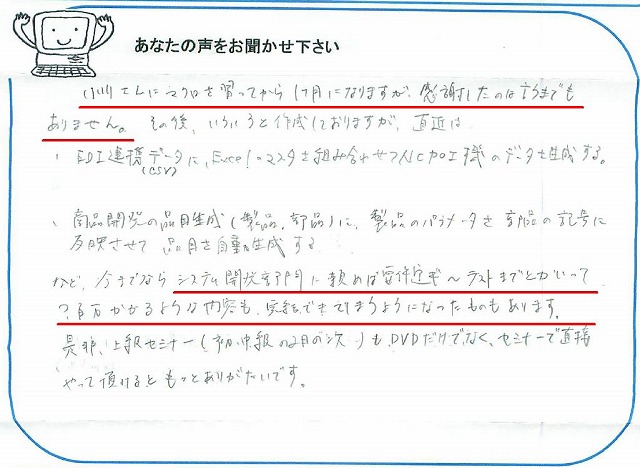 あなたの声をお聞かせ下さい
小川さんにマクロを習ってから1ヶ月になりますが、感謝したのは言うまでも
ありません。その後、いろいろと作成しておりますが、直近は
・EDI連携データに、Excelのマスタを組み合わせてNC加工機のデータを生成する。
(CSV)
・商品開発の品目生成(製品、部品)に、製品のパラメータを部品の記号に
反映させて品目を自動生成する
など、今までなら システム開発部門に頼めば要件定義〜テストまでとかいって
?百万かかるような内容も、実現できてしまうようになったものもあります。
是非、上級セミナー(初中級の2月の次)も、DVDだけでなく、セミナーで直接
やって頂けると もっとありがたいです。